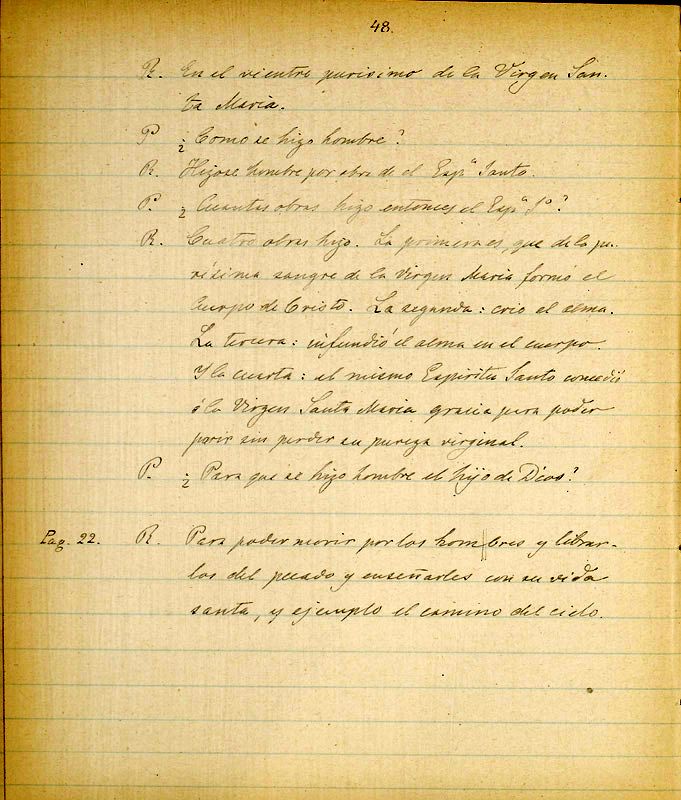 48.
R. En el vientre purisimo de la Virgen San-
ta Maria.
P. ¿Como se hizo hombre?
R. Hizose hombre por obra de el Espu Santo.
P. ¿Cuantas obras hizo entonces el Espu Sto?
R. Cuatro obras hizo. La primera es, que de la pu-
risima sangre de la Virgen Maria formó el
Cuerpo de Cristo. La segunda: crio el alma.
La tercera: infundió el alma en el cuerpo.
Y la cuarta: el mismo Espiritu Santo concedió
á la Virgen Santa Maria gracia para poder
parir sin perder su pureza virginal.
P. ¿Para que se hizo hombre el hijo de Dios?
Pag. 22. R. Para poder morir por los hombres y librar-
los del pecado y enseñarles con su vida
santa, y ejemplo el camino del cielo.